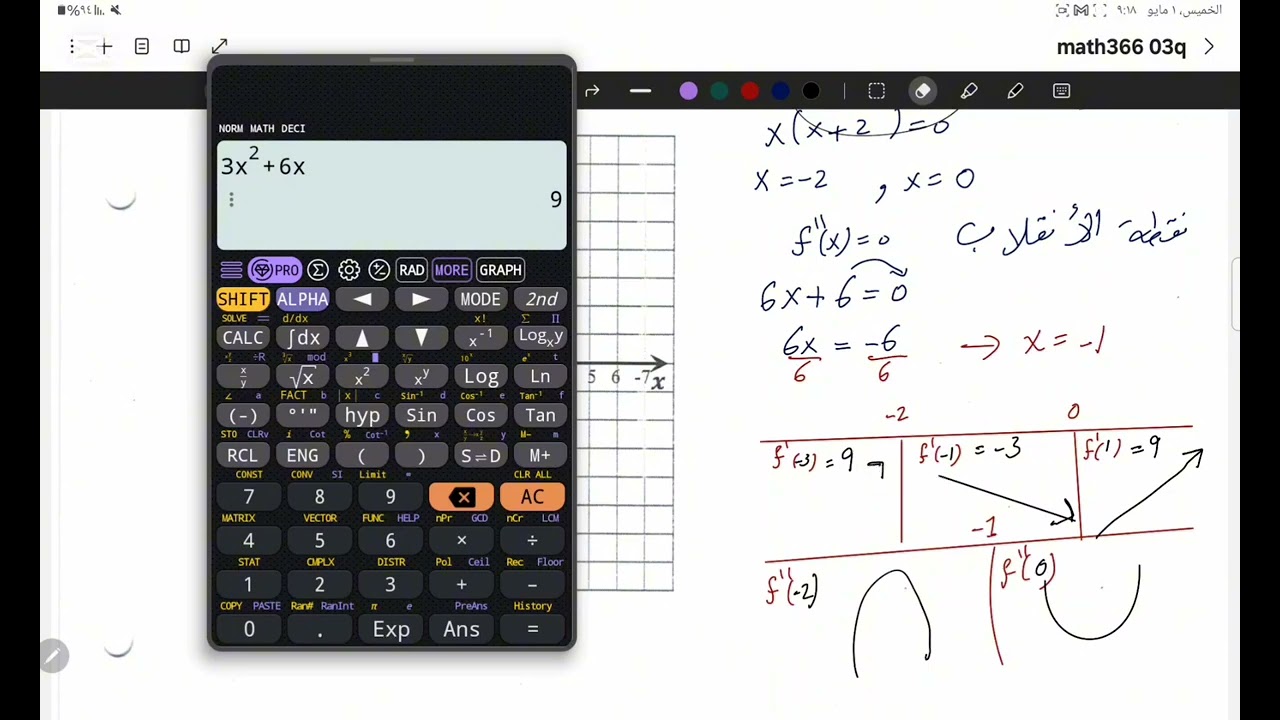 %٩٤
الخميس، ١ مايو ٩:١٨
math366 03q
NORM MATH DECI
3x²+6x
9
PRO Σ RAD MORE GRAPH
SHIFT ALPHA ◀ ▶ MODE 2nd
SOLVE = d/dx x! Σ Π
CALC ∫dx ▲ ▼ x⁻¹ Logₓy
÷R mod x³ 10ˣ eˣ t
x/y √x x² xʸ Log Ln
∠ a FACT b |x| c Sin⁻¹ d Cos⁻¹ e Tan⁻¹ f
(-) °'" hyp Sin Cos Tan
STO CLRv i Cot % Cot⁻¹ , x y M- m
RCL ENG ( ) S⇌D M+
CONST CONV SI Limit = CLR ALL
7 8 9 AC
MATRIX VECTOR FUNC HELP nPr GCD nCr LCM
4 5 6 × ÷
STAT CMPLX DISTR Pol Ceil Rec Floor
1 2 3 + −
COPY PASTE Ran# RanInt π e PreAns History
0 . Exp Ans =
5 6 -7 x
x(x+2)=0
x=-2 , x=0
f''(x)=0 نقطة الانقلاب
6x+6=0
6x/6 = -6/6 → x=-1
-2 0
f'(-3)=9 f'(-1)=-3 f'(1)=9
-1
f''(-2) f''(0)